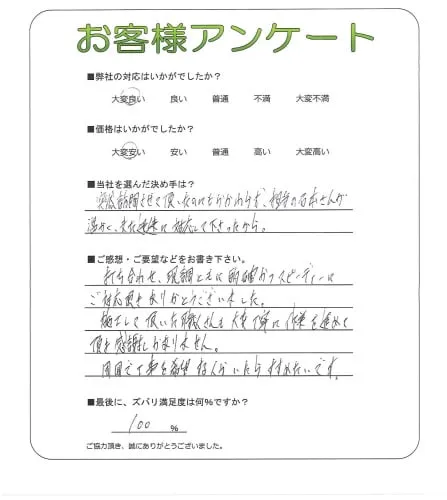 お客様アンケート
■弊社の対応はいかがでしたか？
大変良い 良い 普通 不満 大変不満
■価格はいかがでしたか？
大変安い 安い 普通 高い 大変高い
■当社を選んだ決め手は？
突然訪問させて頂いたのにもかかわらず、担当の石本さんが
温かく、また迅速に対応して下さったから。
■ご感想・ご要望などをお書き下さい。
打ち合わせ、現調ともに的確かつスピーディーに
ご対応頂きありがとうございました。
施工して頂いた職人さんも大変丁寧に作業を進めて
頂き感謝しかありません。
周囲で工事を希望する人がいたらすすめたいです。
■最後に、ズバリ満足度は何%ですか？
100 %
ご協力頂き、誠にありがとうございました。